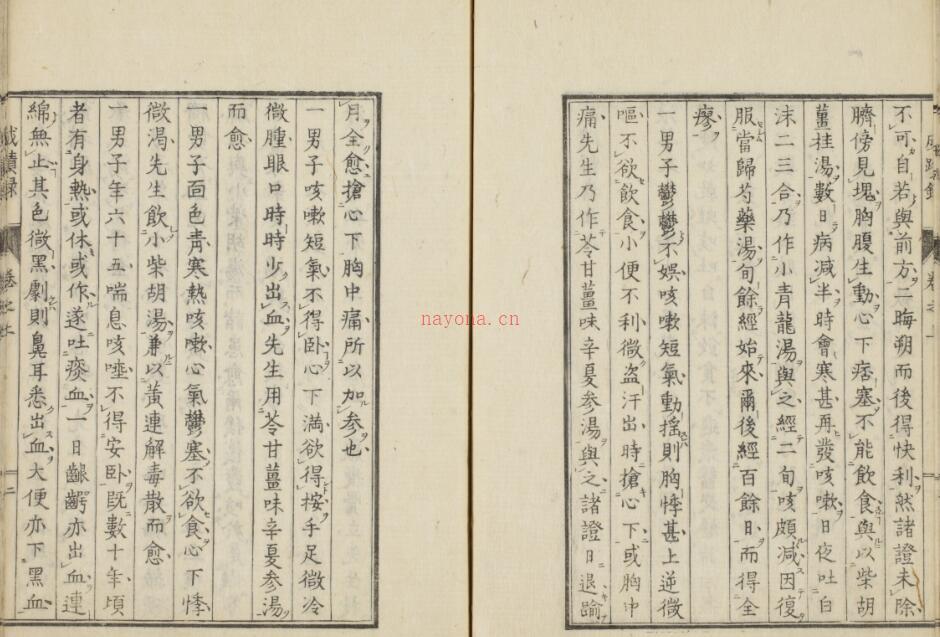 不可自若與前方二晦朔而後得快利然諸證未除
臍傍見塊胸腹生動心下痞塞不能飲食與以柴胡
薑桂湯數日病减半時會寒甚再發咳嗽日夜吐白
沫二三合乃作小青龍湯與之經二旬咳頗减因復
服當歸芍藥湯旬餘經始來爾後經百餘日而得全
瘳
一男子鬱鬱不娯咳嗽短氣動揺則胸悸甚上逆微
嘔不欲飲食小便不利微盗汗出時搶心下或胸中
痛先生乃作苓甘薑味辛夏参湯與之諸證日退踰
月全愈搶心下胸中痛所以加参也
一男子咳嗽短氣不得卧心下満欲得按手足微冷
微腫眼口時時少出血先生用苓甘薑味辛夏参湯
而愈
一男子面色青寒熱咳嗽心氣鬱塞不欲食心下悸
微渇先生飲小柴胡湯兼以黄連解毒散而愈
一男子年六十五喘息咳唾不得安卧既數十年頃
者有身熱或休或作遂吐痰血一日齦齶亦出血連
綿無止其色微黑劇則鼻耳悉出血大便亦下黑血
成蹟録
卷之上
二
nayona.cn